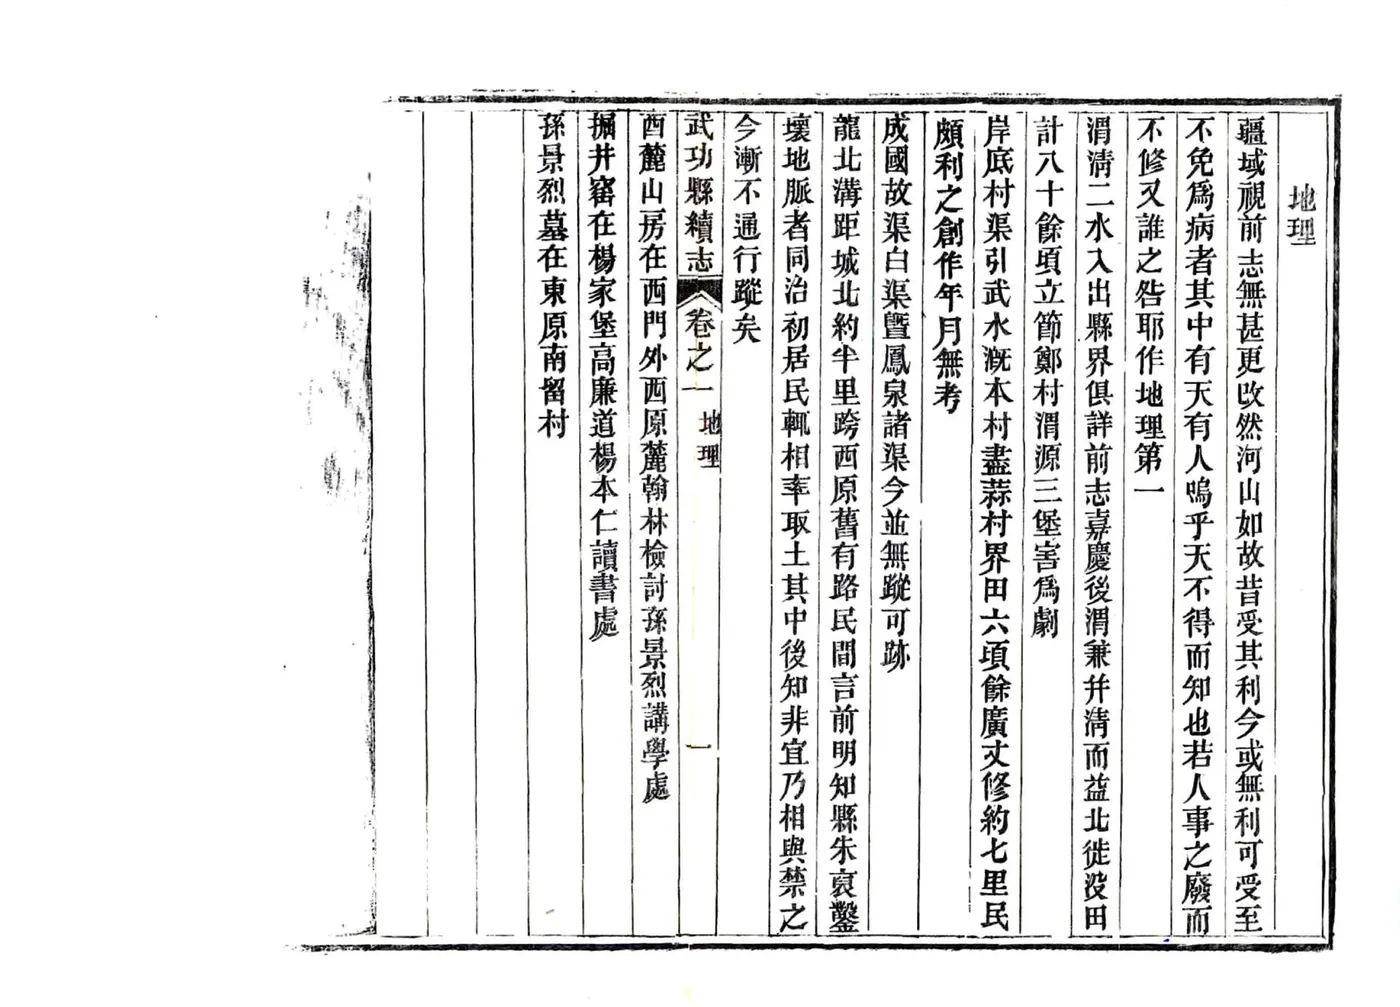 地理
疆域視前志無甚更改然河山如故昔受其利今或無利可受至
不免爲病者其中有天有人嗚乎天不得而知也若人事之廢而
不修又誰之咎耶作地理第一
渭淸二水入出縣界俱詳前志嘉慶後渭兼幷淸而益北徙没田
計八十餘頃立節鄭村渭源三堡害爲劇
岸底村渠引武水漑本村盡蒜村界田六頃餘廣丈修約七里民
頗利之創作年月無考
成國故渠白渠曁鳳泉諸渠今並無蹤可跡
龍北溝距城北約半里跨西原舊有路民間言前明知縣朱裒鑿
壞地脈者同治初居民輒相率取土其中後知非宜乃相與禁之
今漸不通行蹤矣
武功縣續志 卷之一 地理 一
西麓山房在西門外西原麓翰林檢討孫景烈講學處
掘井窰在楊家堡高廉道楊本仁讀書處
孫景烈墓在東原南留村